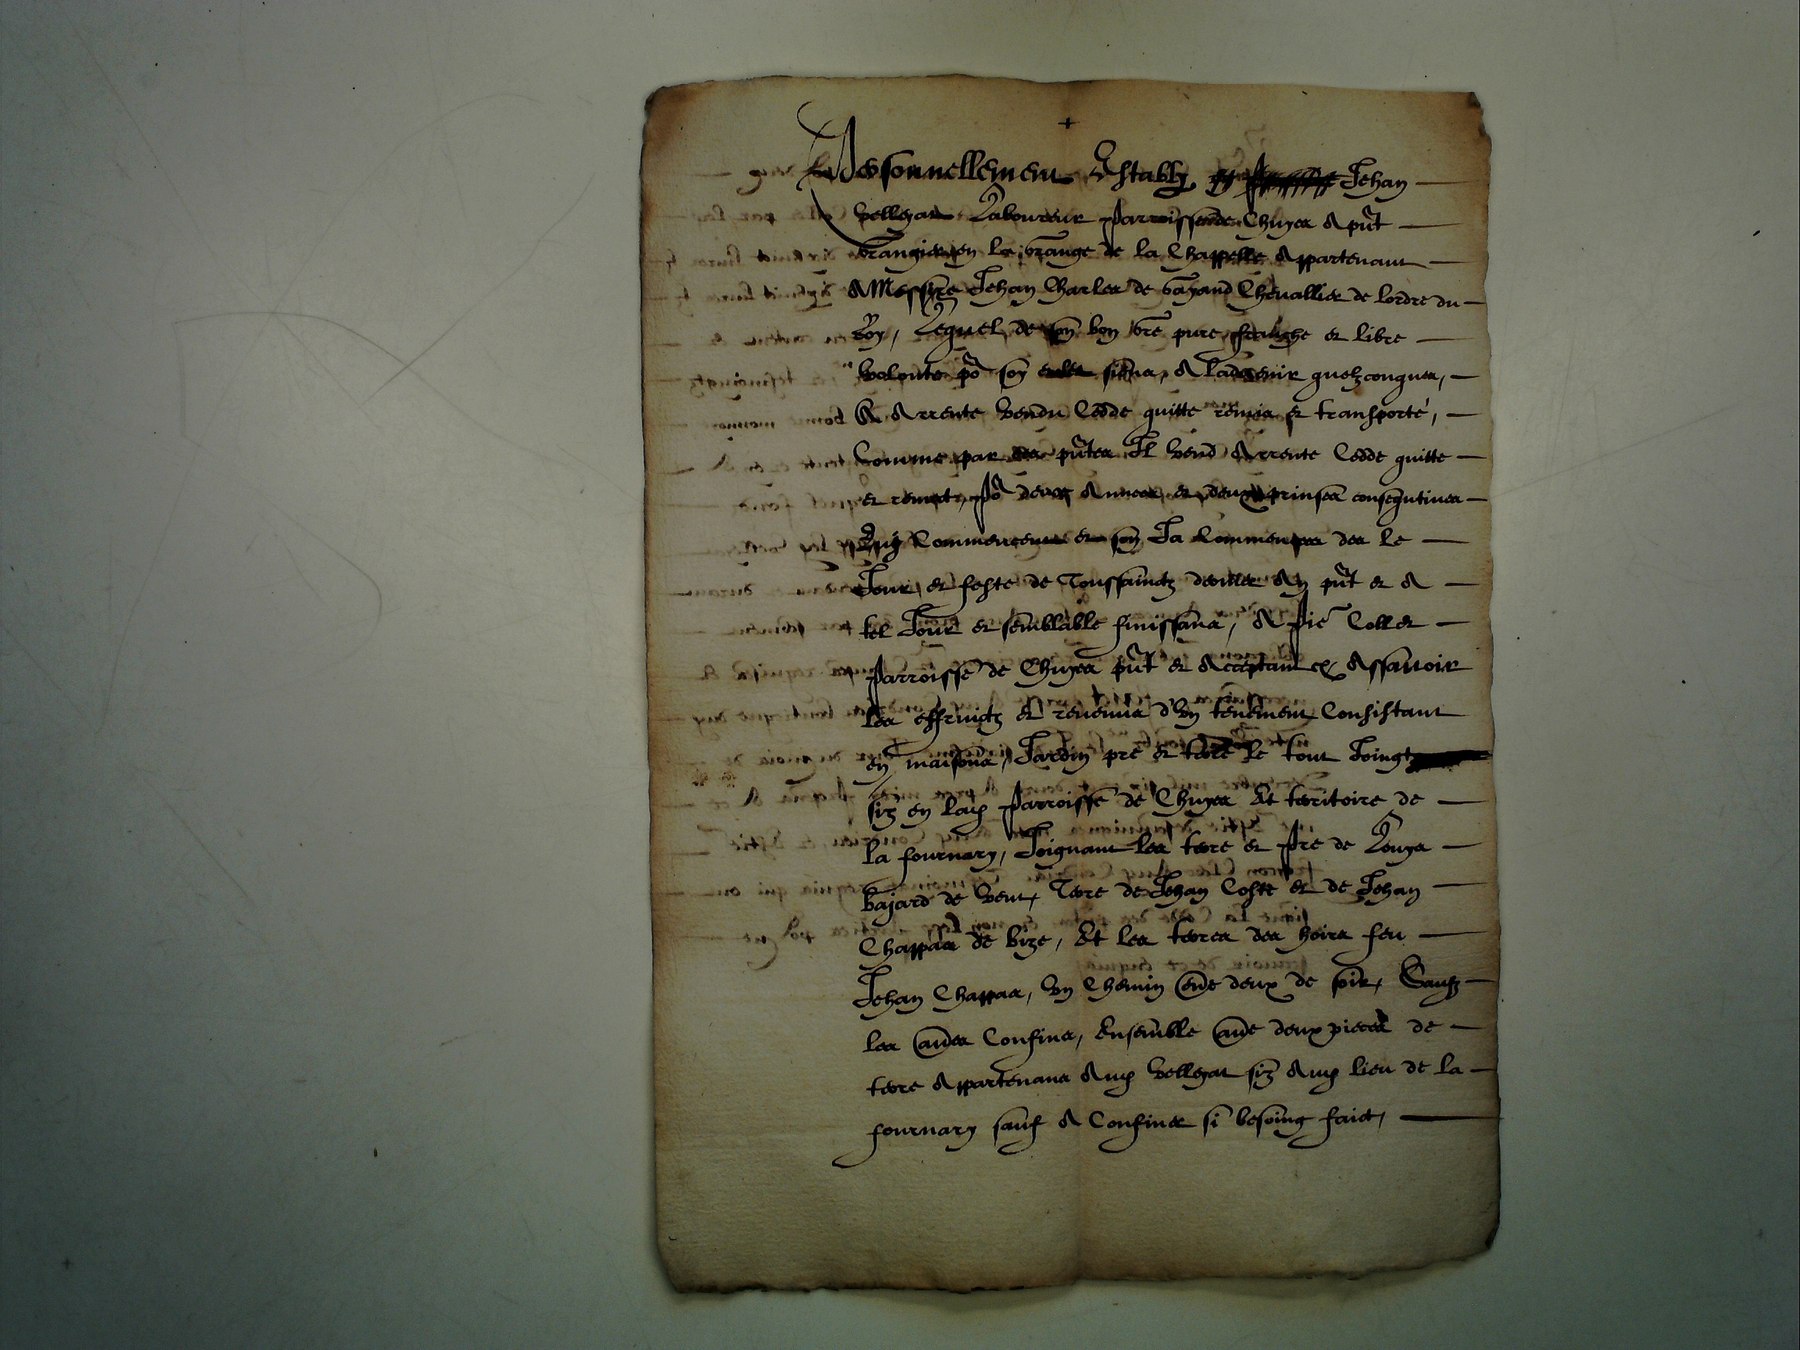 +
Personnellement Estably Jehan
Velleyat Laboureur parroissende Chuyes A pnt
Grangier en la grange de la Chappelle Appartenant
A Messire Jehan Charles de Chevallier de lordre du
Roy, Lequel de son bon gre pure franche et libre
volonte po soy et les siens, A ladvenir quelzconques,
A Arrente Vendu Cedde quitte remis et transporté,
Comme par ces pntes Il Vend Arrente Cedde quitte
et remect, po deux Annees et deux prinses consequtives
Quy Commencent et son Ja Commences des le
Jour et feste de Toussainctz dernier An pnt et A
tel Jour et semblable finissans, A pie Collet
parroisse de Chuyes pnt et Acceptant Assavoir
Les effruictz et revenus d'Un tenement Consistant
en maisons, Jardin pre et terre le tout Joingt
siz en lad parroisse de Chuyes Et territoire de
la fournary, Joignant les terre et pre de Louys
bajard de Vent, Terre de Jehan Coste et de Jehan
Chappas de bize, Et les terres des hoirs feu
Jehan Chappas, Un Chemin entre deux de soir, Saufz
les autres Confins, Ensemble autre deux pieces de
terre Appartenans Aud Velleyat siz Aud lieu de la
fournary sauf A Confiner si besoing faict,